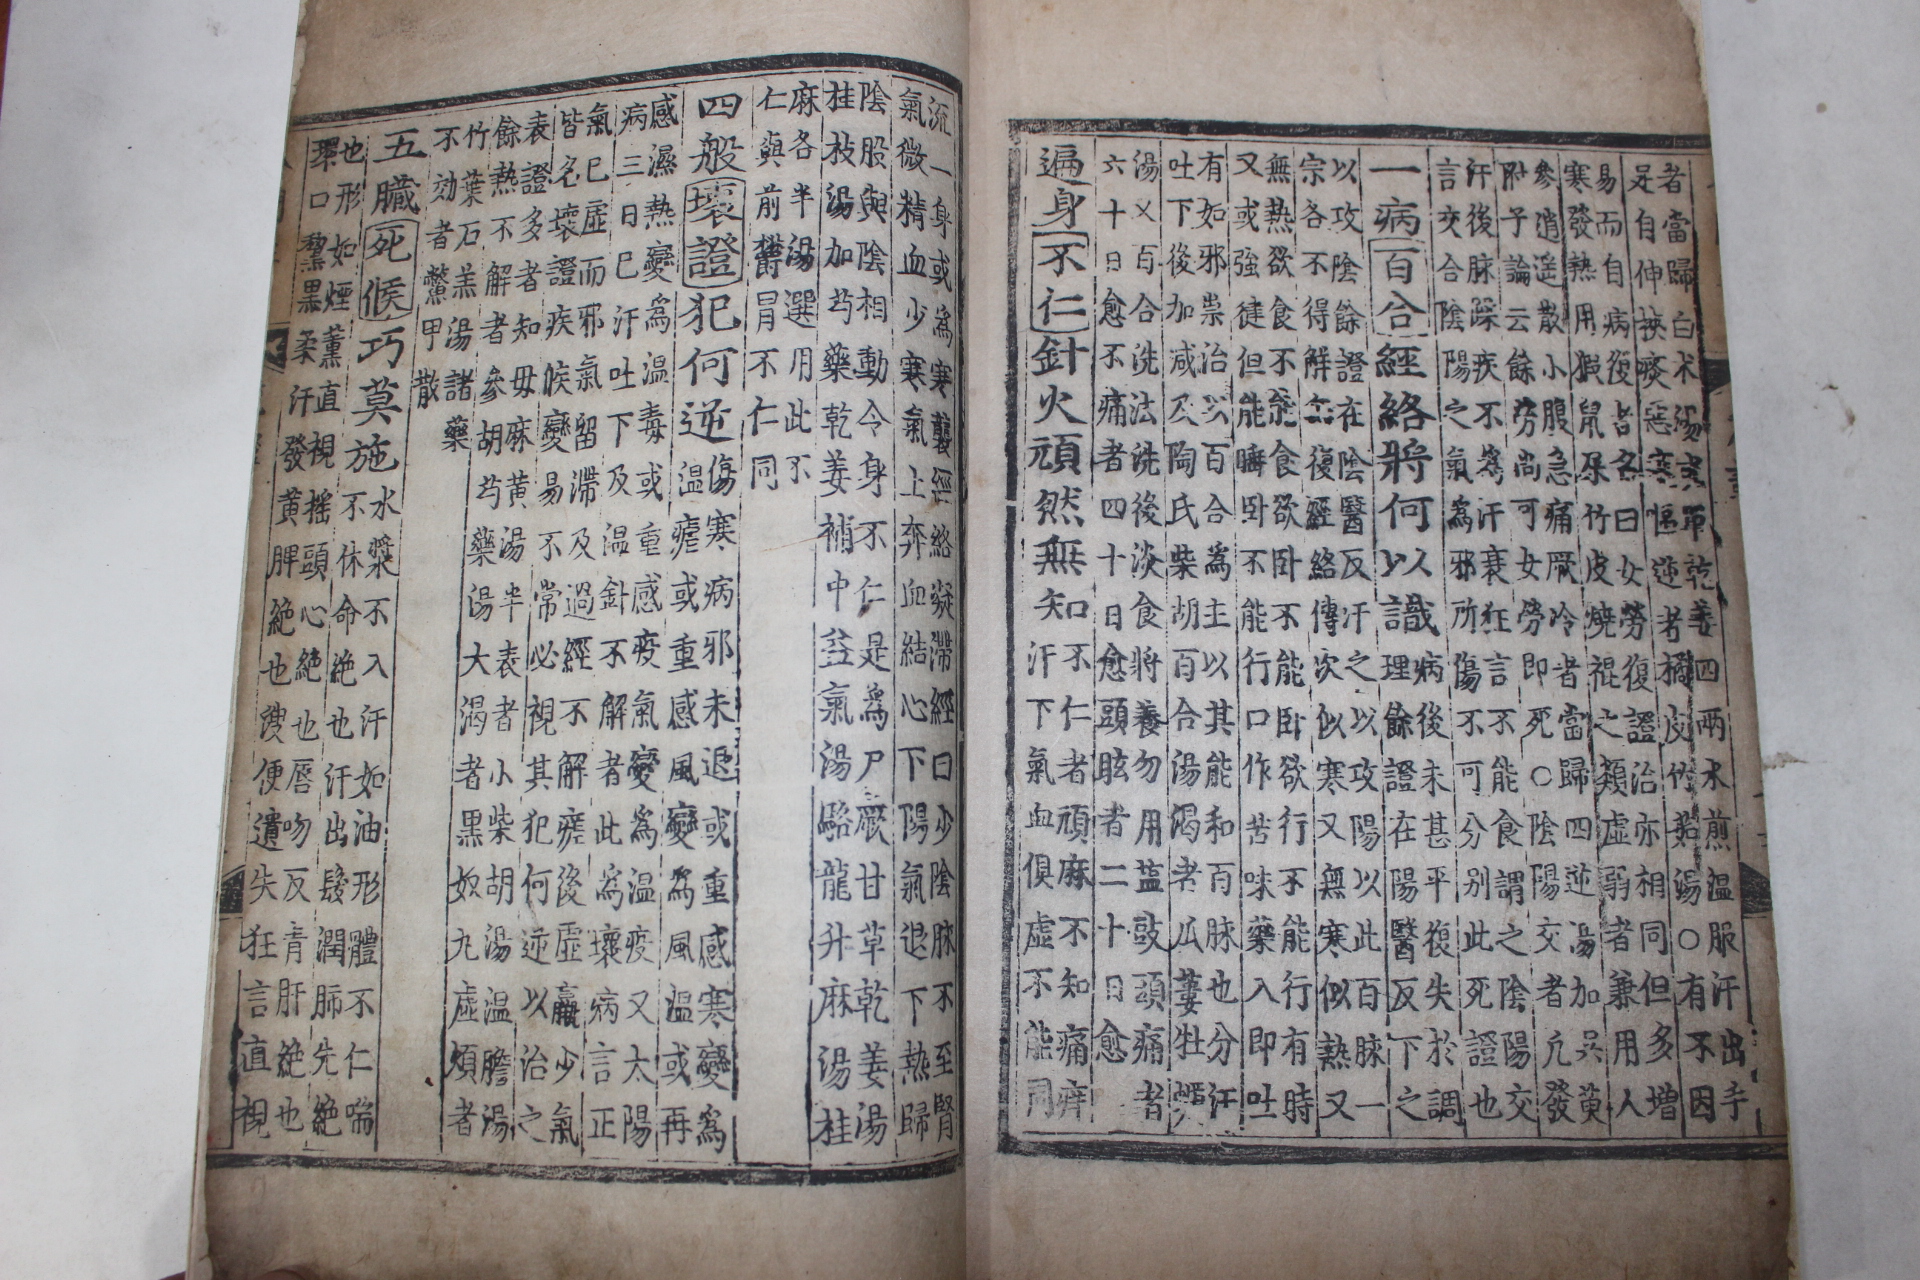 者當歸白术湯炙草乾姜四兩水煎温服汗出手
足自伸挾痰惡寒嘔逆者橘皮竹茹湯○有不因
易而自病復者名曰女勞復證治亦相同但多增
寒發熱用猳鼠屎竹皮燒裩之類虚弱者兼用人
參逍遥散小腹急痛厥冷者當歸四逆湯加吳茰
附子論云餘勞尚可女勞即死○陰陽交者凢發
汗後脉躁疾不為汗衰狂言不能食謂之陰陽交
言交合陰陽之氣為邪所傷不可分别此死證也
一病百合經絡將何以識
病後未甚平復失於調
理餘證在陽醫反下之
以攻陰餘證在陰醫反汗之以攻陽以此百脉一
宗各不得解復經絡傳次似寒又無寒似熱又
無熱欲食不能食欲卧不能卧欲行不能行有時
又或强健但能卧不能行口作苦味藥入即吐
有如邪祟治以百合為主以其能和百脉也分汗
吐下後加减及陶氏柴胡百合湯渴者瓜蔞牡蠣
湯又百合洗法洗後淡食將養勿用盐豉頭痛者
六十日愈不痛者四十日愈頭眩者二十日愈
遍身不仁針火頑然無知
不仁者頑麻不知痛痒
汗下氣血俱虚不能同
流一身或為寒襲經絡凝滞經曰少陰脉不至腎
氣微精血少寒氣上奔血結心下陽氣退下熱歸
陰股與陰相動令身不仁是為尸厥甘草乾姜湯
桂枝湯加芍藥乾姜補中益氣湯駱龍升麻湯桂
麻各半湯選用此不
仁與前欝冒不仁同
四般壞證犯何逆
傷寒病邪未退或重感寒變為
温瘧或重感風變為風温或再
感濕熱變為温毒或重感疫氣變為温疫又太陽
病三日巳汗吐下及温針不解者此為壞病言正
氣巳虚而邪氣留滞及過經不解瘥後虚羸少氣
皆名壞證疾候變易不常必視其犯何逆以治之
表證多者知毋麻黄湯半表者小柴胡湯温膽湯
餘熱不解者參胡芍藥湯大渴者黒奴丸虚煩者
竹葉石羔湯諸藥
不効者鱉甲散
五臟死候巧莫施
水漿不入汗如油形體不仁喘
不休命絶也汗出髮潤肺先絶
也形如煙薰直視摇頭心絶也唇吻反青肝絶也
環口黎黒柔汗發黄脾絶也溲便遺失狂言直視